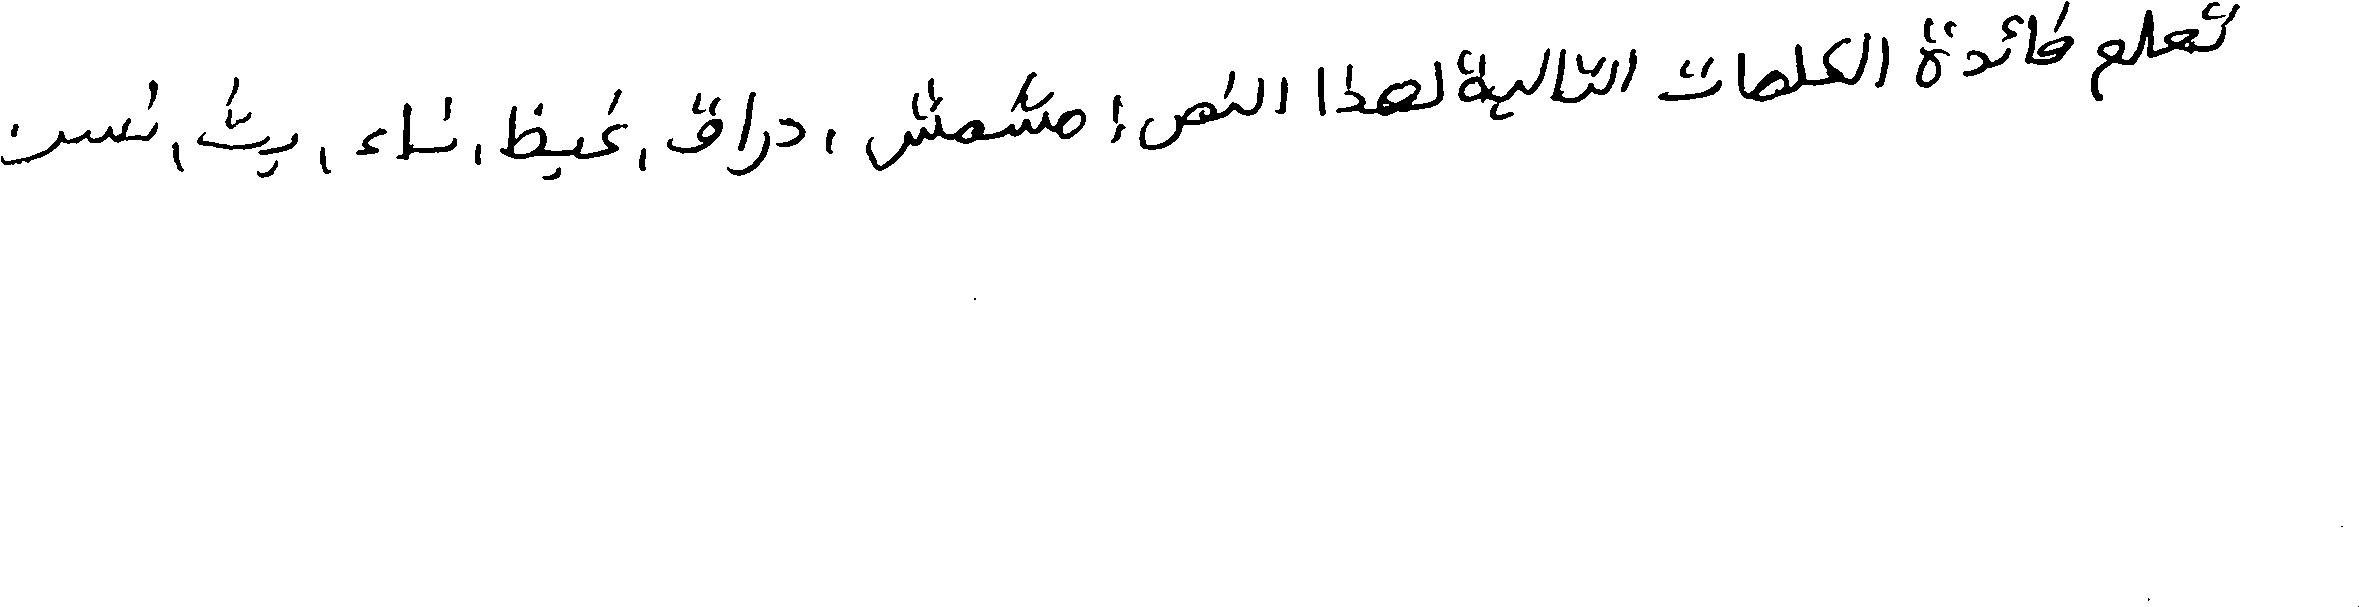 تعلم فائدة الكلمات التالية لهذا النص: مشمش، دراق، غيظ، شاء، يث، نسن